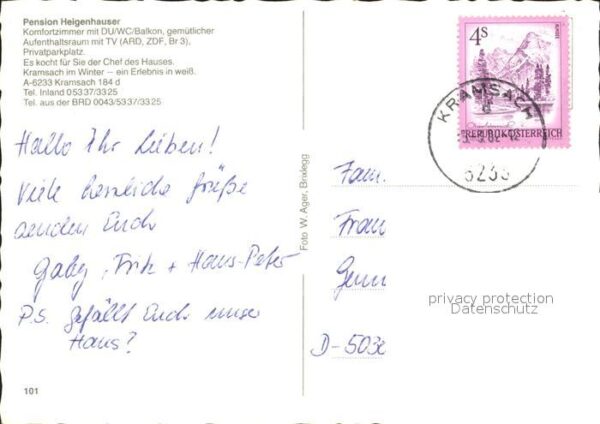 Pension Heigenhauser
Komfortzimmer mit DU/WC/Balkon, gemütlicher
Aufenthaltsraum mit TV (ARD, ZDF, Br 3),
Privatparkplatz.
Es kocht für Sie der Chef des Hauses.
Kramsach im Winter – ein Erlebnis in weiß.
A-6233 Kramsach 184 d
Tel. Inland 05337/3325
Tel. aus der BRD 0043/5337/3325
Hallo Ihr Lieben!
Viele herzliche Grüße
senden Euch
Gaby, Fritz + Hans-Peter
P.S. gefällt Euch unser
Haus?
101
Foto W. Ager, Brixlegg
4S
REPUBLIK ÖSTERREICH
KRAMSACH
6233
Fam.
Frau
privacy protection
Datenschutz
D-503